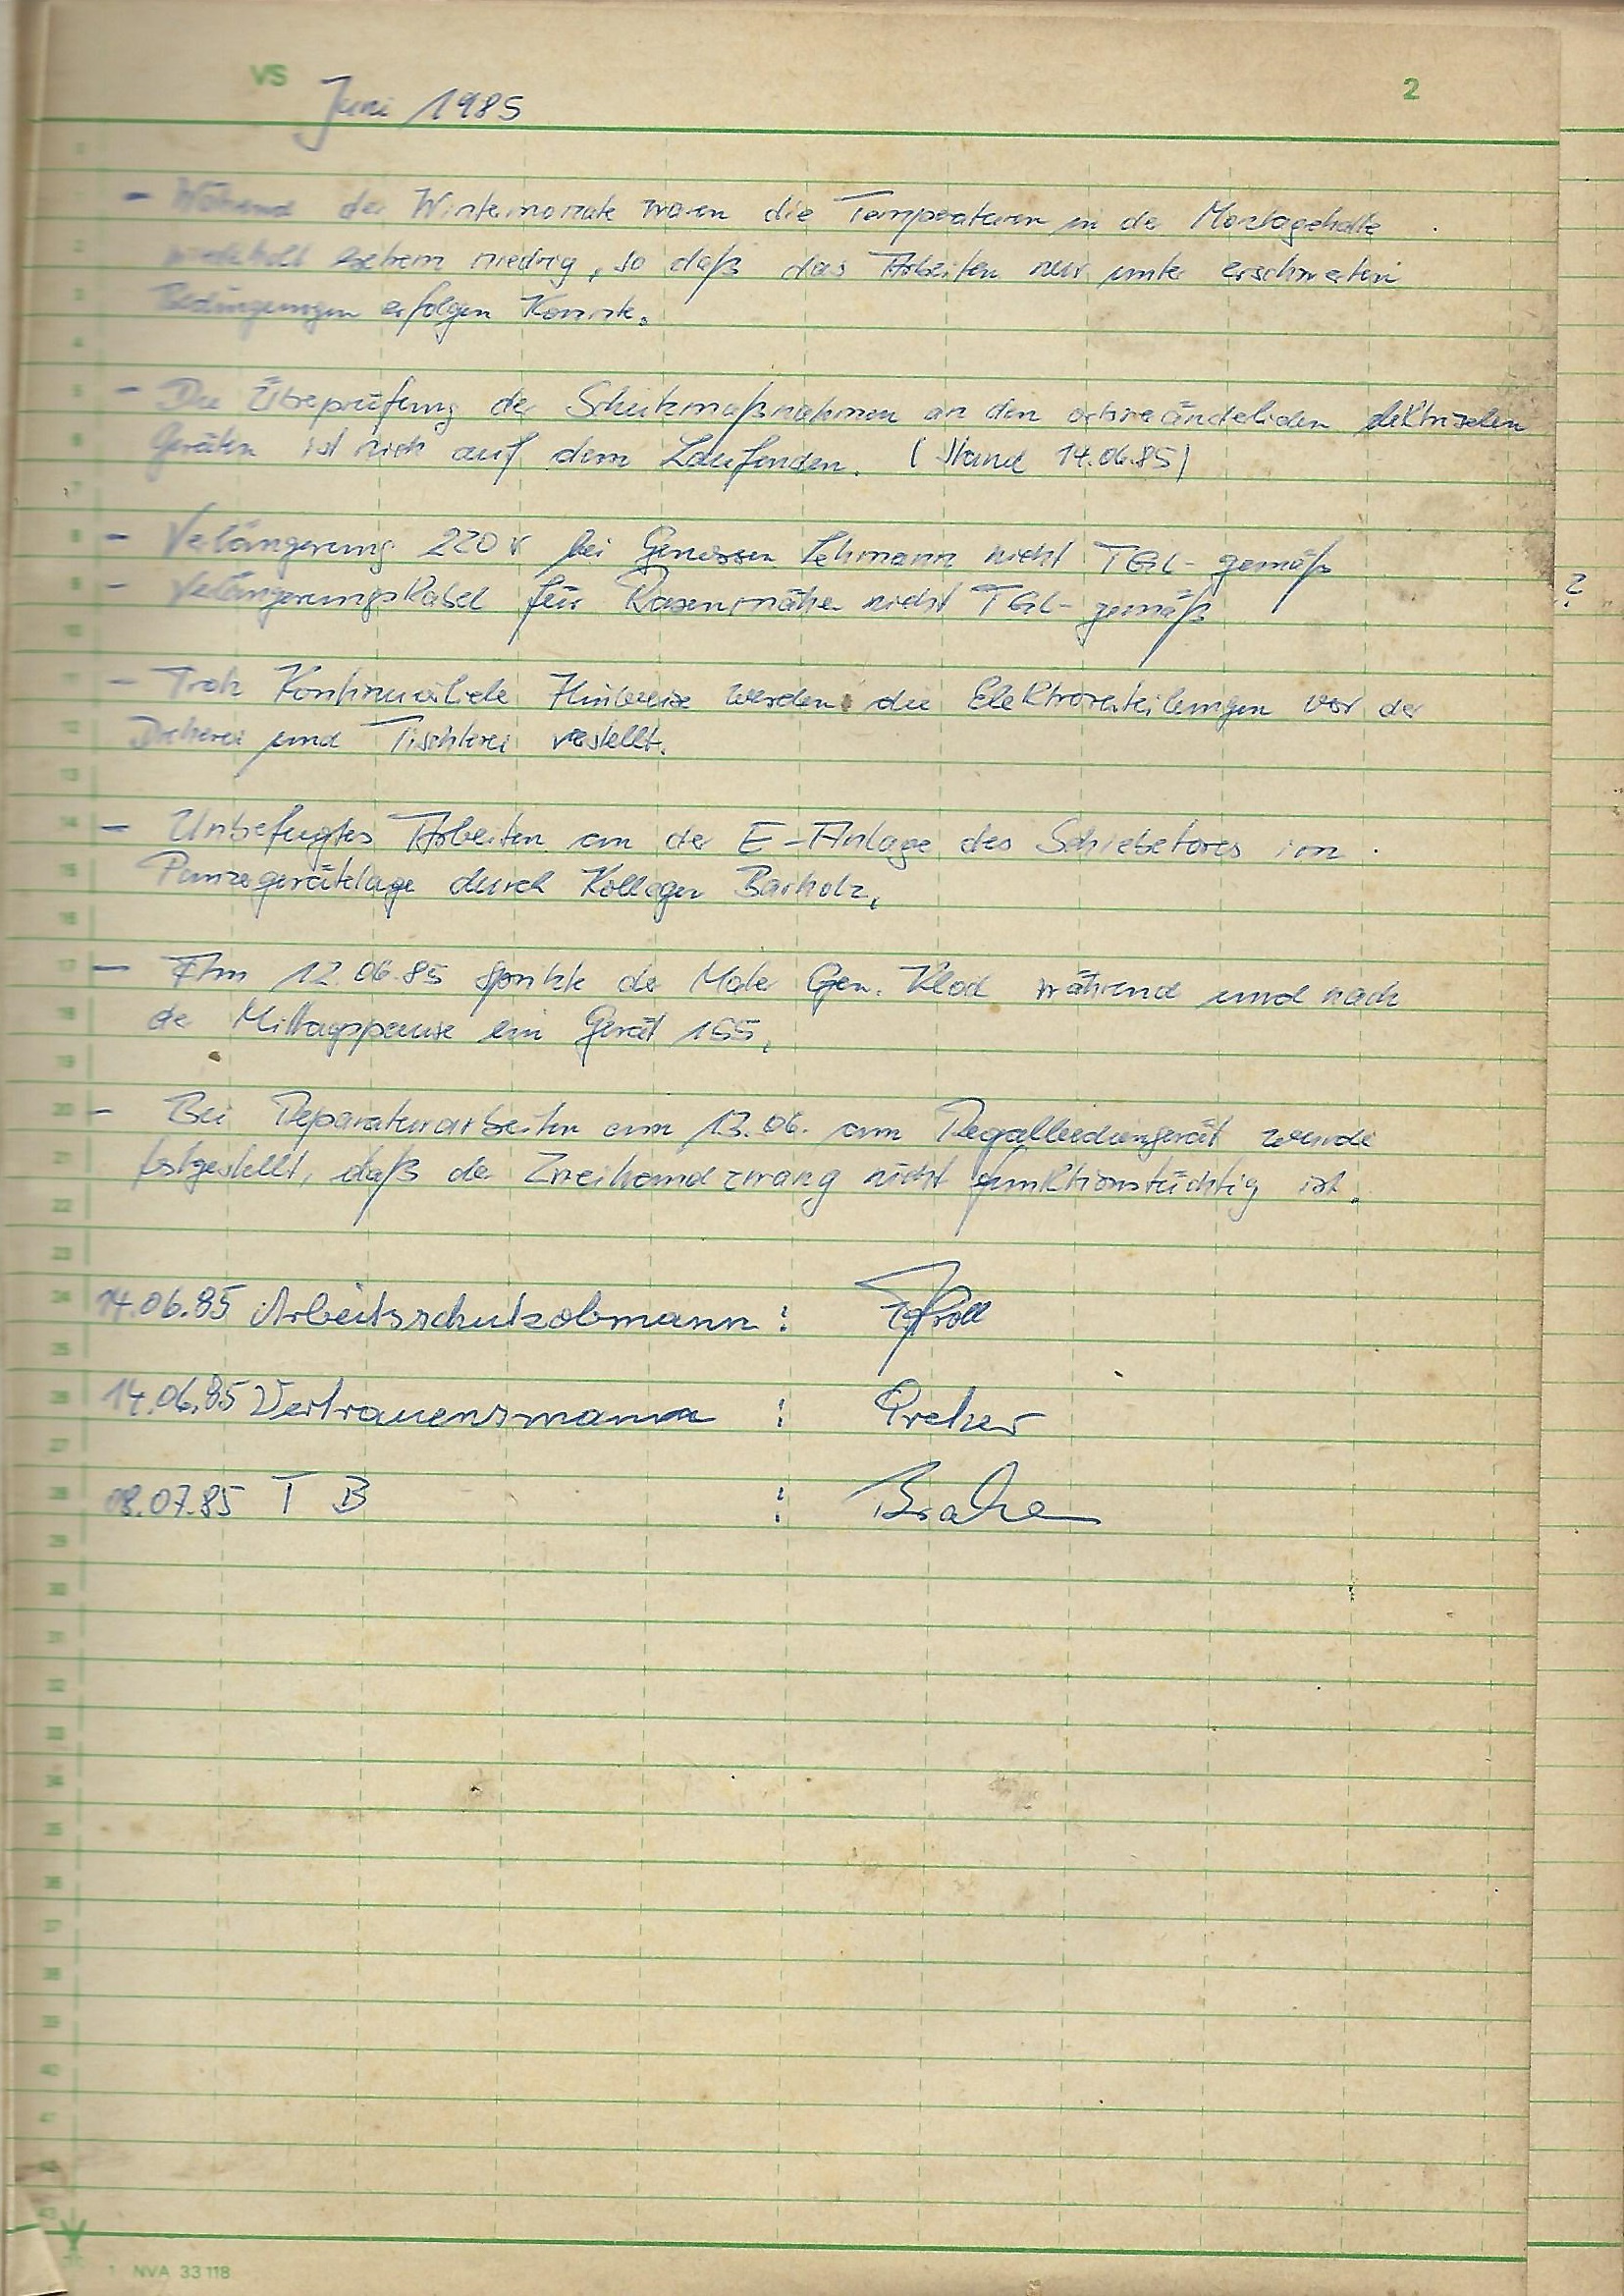 VS
Juni 1985
2
- Während der Wintermonate waren die Temperaturen in der Montagehalle
wiederholt extrem niedrig, so daß das Arbeiten nur unter erschwerten
Bedingungen erfolgen konnte.
- Die Überprüfung der Schutzmaßnahmen an den ortsveränderlichen elektrischen
Geräten ist nich auf dem Laufenden. (Stand 14.06.85)
- Verlängerung 220 V bei Genossen Lehmann nicht TGL-gemäß
- Verlängerungskabel für Rasenmäher nicht TGL-gemäß
?
- Trotz Kontinuierliche Hinweise werden die Elektroverteilungen vor der
Dreherei und Tischlerei verstellt.
- Unbefugtes Arbeiten an der E-Anlage des Schiebetores im
Panzergerätelager durch Kollegen Barholz,
- Am 12.06.85 spritzte der Maler Gen. während und nach
der Mittagspause ein Gerät 155,
- Bei Reparaturarbeiten am 13.06. am Regalbediengerät wurde
festgestellt, daß der Zweihandzwang nicht funktionstüchtig ist.
14.06.85 Arbeitsschutzobmann :
14.06.85 Vertrauensmann :
08.07.85 T B :
1 2 3 4 5 6 7 8 9 10 11 12 13 14 15 16 17 18 19 20 21 22 23 24 25 26 27 28 29 30 31 32 33 34 35 36 37 38 39 40 41 42 43
1 NVA 33118